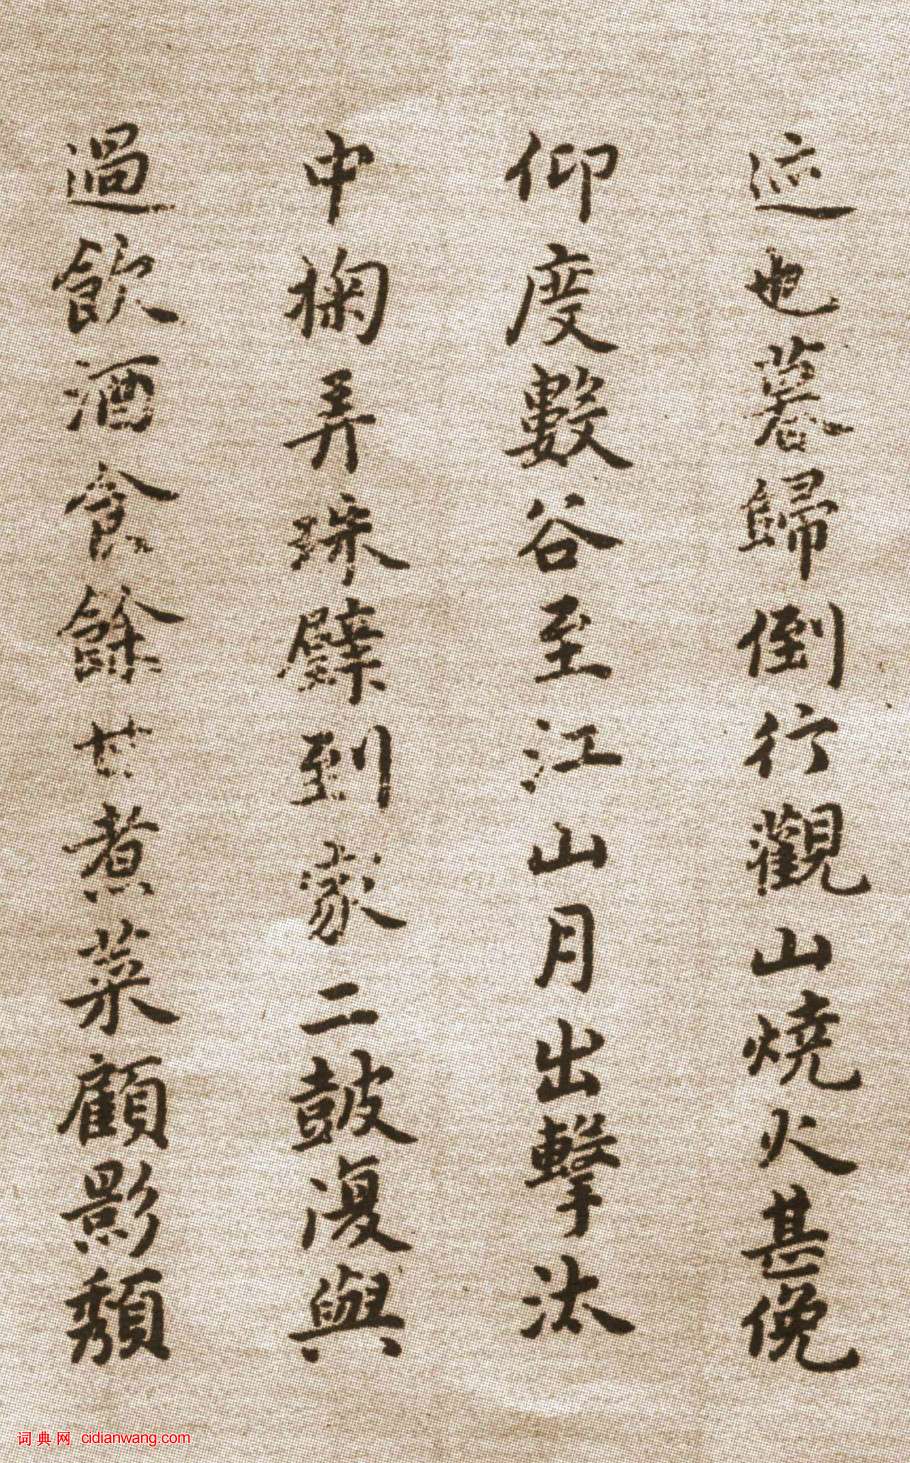 迹也暮歸倒行觀山燒火甚俛
仰度數谷至江山月出擊汰
中掬弄珠璧到家二鼓復與
過飲酒食餘甘煮菜顧影頹
词典网 cidianwang.com